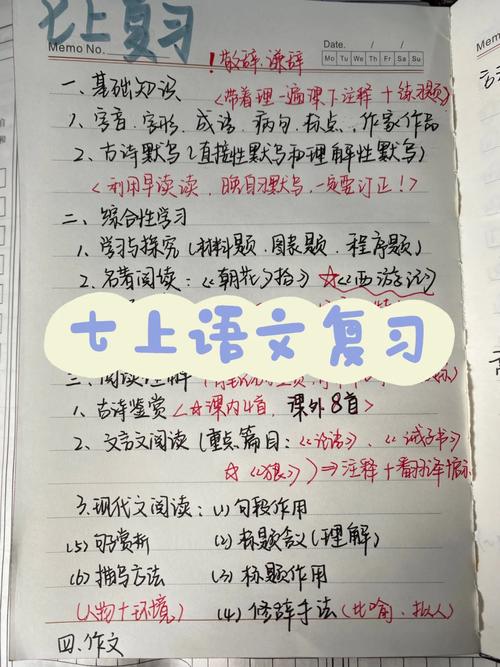 七上复习
Memo No.
Date. / /
Mo Tu We Th Fr Sa Su
！敬辞·谦辞
一、基础知识
<带着理一遍课下注释+练习题>
1、字音·字形、成语、病句、标点、作家作品
2、古诗默写(直接性默写和理解性默写)
<利用早读读，晚自习默写，一定要订正！>
二、综合性学习
1、学习与探究(材料题·图表题·程序题)
2、名著阅读：《朝花夕拾》☆《西游记》
七上语文复习
三、阅读理解
1、古诗鉴赏<☆课内4首，课外8首>
2、文言文阅读(重点篇目：《论语》、《诫子书》
☆《狼》)⇒注释+翻译
3.现代文阅读：(1)句段作用
(5)句子赏析 (2)标题含义(理解)
(6)描写方法 (3)标题作用
(人物+环境) (4)修辞手法(比喻、拟人)
四、作文